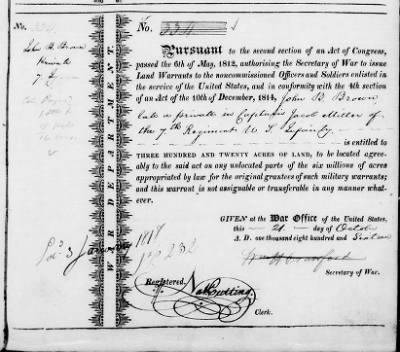 No.
No. 334
John B Brown
Private
7
PURSUANT to the second section of an Act of Congress,
passed the 6th of May, 1812, authorising the Secretary of War to issue
Land Warrants to the noncommissioned Officers and Soldiers enlisted in
the service of the United States, and in conformity with the 4th section
of an Act of the 10th of December, 1814, John B Brown
late a private in Captain Jacob Miller of
the 7th Regiment U. S. Infantry
is entitled to
THREE HUNDRED AND TWENTY ACRES OF LAND, to be located agreeably
to the said act on any unlocated parts of the six millions of acres
appropriated by law for the original grantees of such military warrants;
and this warrant is not assignable or transferable in any manner whatever.
WAR DEPARTMENT.
GIVEN at the War Office of the United States,
this 21 day of October
A. D. one thousand eight hundred and Sixteen
Wm H Crawford
Secretary of War.
January 1818
232
Registered. Nat Cutting
Clerk.